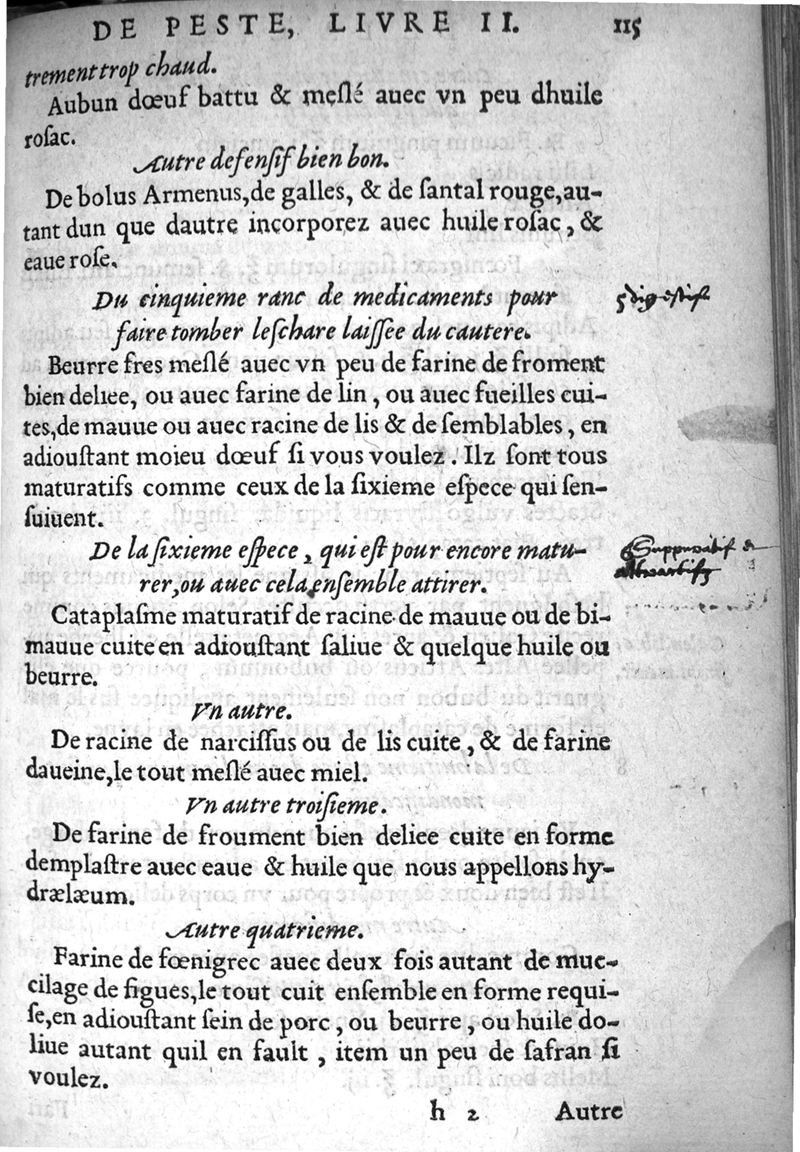 DE PESTE, LIVRE II. 115
trement trop chaud.
Aubun dœuf battu & meſlé auec vn peu dhuile
roſac.
Autre defenſif bien bon.
De bolus Armenus, de galles, & de ſantal rouge, au-
tant dun que dautre incorporez auec huile roſac, &
eaue roſe.
Du cinquieme ranc de medicaments pour
faire tomber leſchare laiſſee du cautere.
5 digestifz
Beurre fres meſlé auec vn peu de farine de froment
bien deliee, ou auec farine de lin, ou auec fueilles cui-
tes, de mauue ou auec racine de lis & de ſemblables, en
adiouſtant moieu dœuf ſi vous voulez. Ilz ſont tous
maturatifs comme ceux de la ſixieme eſpece qui ſen-
ſuiuent.
De la ſixieme eſpece, qui eſt pour encore matu-
rer, ou auec cela enſemble attirer.
6 Suppuratif &
Cataplaſme maturatif de racine de mauue ou de bi-
mauue cuite en adiouſtant ſaliue & quelque huile ou
beurre.
Vn autre.
De racine de narciſſus ou de lis cuite, & de farine
daueine, le tout meſlé auec miel.
Vn autre troiſieme.
De farine de froument bien deliee cuite en forme
demplaſtre auec eaue & huile que nous appellons hy-
drælæum.
Autre quatrieme.
Farine de fœnigrec auec deux fois autant de muc-
cilage de figues, le tout cuit enſemble en forme requi-
ſe, en adiouſtant ſein de porc, ou beurre, ou huile do-
liue autant quil en fault, item un peu de ſafran ſi
voulez.
h 2 Autre